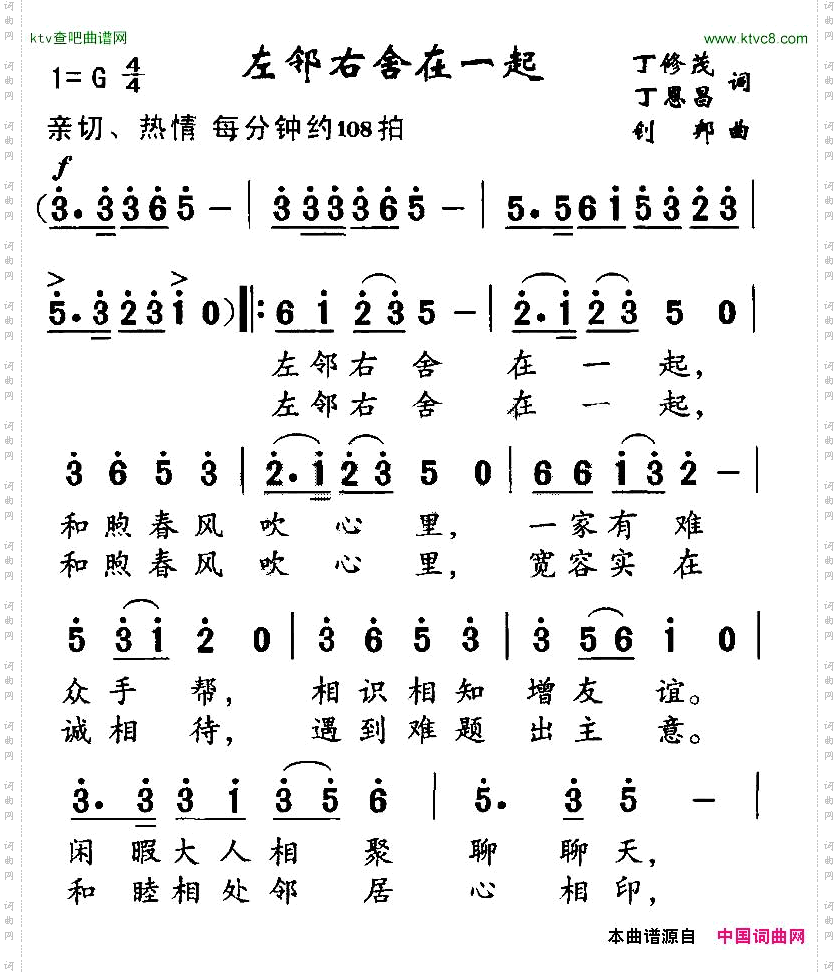 ktv查吧曲谱网
www.ktvc8.com
左邻右舍在一起
1=G 4/4
丁修茂
丁恩昌 词
钊邦 曲
亲切、热情 每分钟约108拍
f
(3. 3 3 6 5 - | 3 3 3 3 6 5 - | 5. 5 6 1 5 3 2 3 |
5. 3 2 3 1 0) ‖: 6 1 2 3 5 - | 2. 1 2 3 5 0 |
左邻右舍在一起,
左邻右舍在一起,
3 6 5 3 | 2. 1 2 3 5 0 | 6 6 1 3 2 - |
和煦春风吹心里, 一家有难
和煦春风吹心里, 宽容实在
5 3 1 2 0 | 3 6 5 3 | 3 5 6 1 0 |
众手帮, 相识相知增友谊。
诚相待, 遇到难题出主意。
3. 3 3 1 3 5 6 | 5. 3 5 - |
闲暇大人相聚聊聊天,
和睦相处邻居心相印,
本曲谱源自 中国词曲网
词曲网